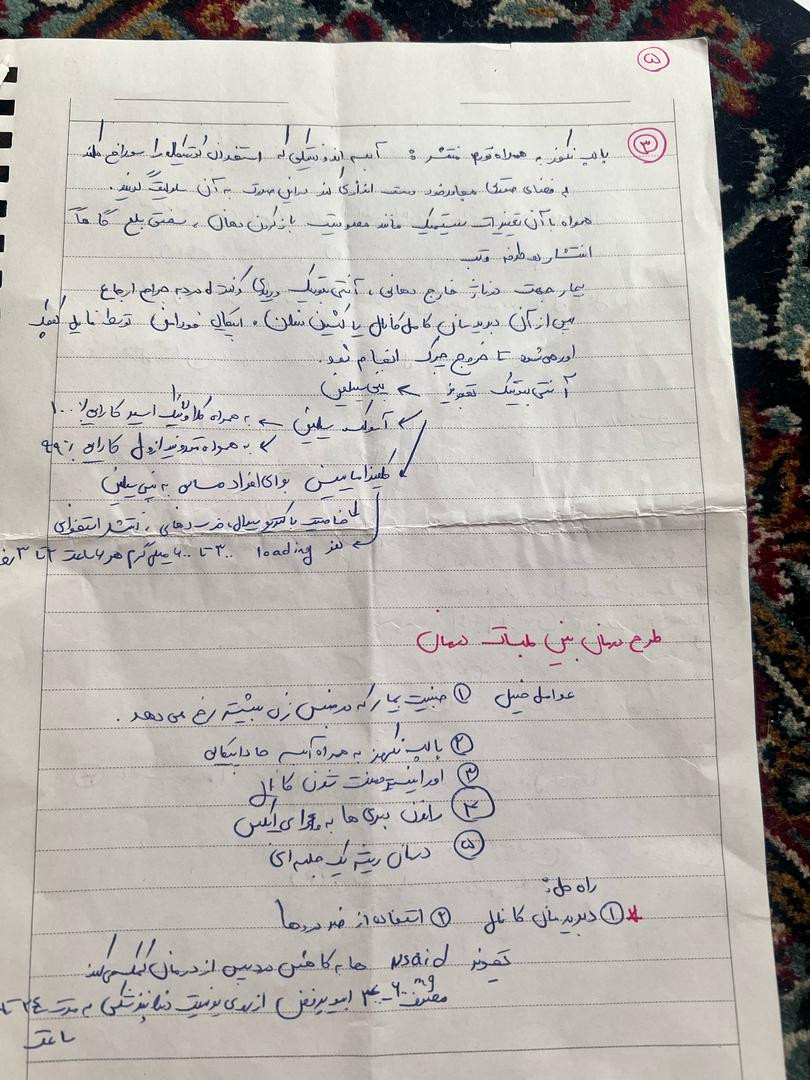 ۵
۳ پالپ نکروز به همراه تورم منتشر : آبسه اندودنتیکی که استخوان کورتیکال را سوراخ کند
به فضای صورتی مجاور خود دست اندازی کند در این صورت به آن سلولیت گویند.
همراه با آن تغییرات سیستمیک مانند محدودیت باز کردن دهان ، سختی بلع گاهاً
انتشار دو طرفه و تب
بیمار جهت درناژ خارج دهانی ، آنتی بیوتیک وریدی کنند به جراح ارجاع
پس از آن دبریدمان کامل کانال یا کشیدن دندان ، اپیکال فورامن توسط فایل
اورمی شود تا خروج چرک انجام شود.
آنتی بیوتیک تجویز ← پنی سیلین
← آموکسی سیلین ← به همراه کلاونیک اسید کارایی ٪۱۰۰
← به همراه مترونیدازول کارایی ٪۹۹
← کلیندامایسین برای افراد حساس به پنی سیلین
خاصیت باکتریوسیدال، ضد دهانی ، انتشار استخوانی
دوز loading ۳۰۰ تا ۶۰۰ میلی گرم هر ۶ ساعت ۲ تا ۳ روز
طرح درمان بین جلسات درمان
عوامل دخیل ۱ جنسیت بیمار که در جنس زن بیشتر رخ می دهد .
۲ پالپ نکروز به همراه آبسه حاد اپیکالی
۳ اور اینسترومنت شدن کانال
۴ راندن دبری ها به ماورای اپکس
۵ درمان ریشه یک جلسه ای
راه حل :
* ۱ دبریدمان کانال ۲ استفاده از ضد دردها
تجویز Nsaid ها به کاهش درد پس از درمان کمک می کند
مصرف ۴۰۰-۶۰۰ mg ایبوپروفن از بدی یونیت دندانپزشکی به مدت ۲۴ تا
ساعت